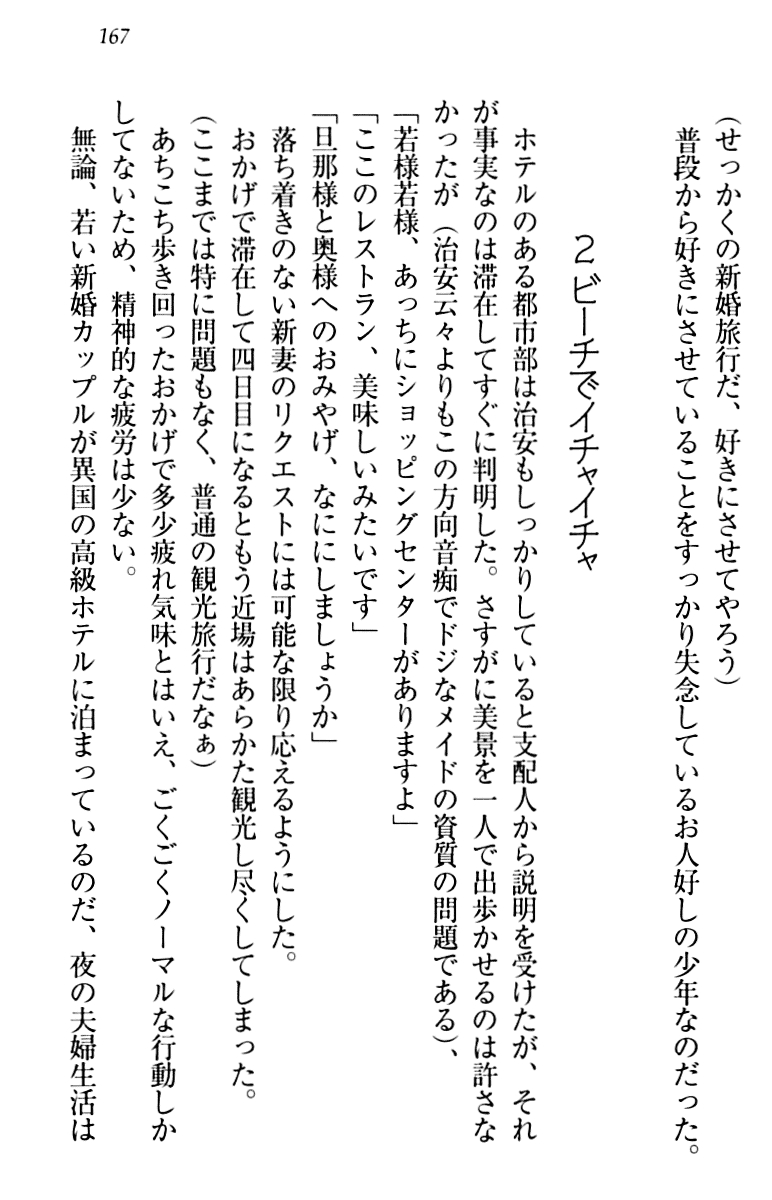 167
(せっかくの新婚旅行だ、好きにさせてやろう)
普段から好きにさせていることをすっかり失念しているお人好しの少年なのだった。
2 ビーチでイチャイチャ
ホテルのある都市部は治安もしっかりしていると支配人から説明を受けたが、それ
が事実なのは滞在してすぐに判明した。さすがに美景を一人で出歩かせるのは許さな
かったが(治安云々よりもこの方向音痴でドジなメイドの資質の問題である)、
「若様若様、あっちにショッピングセンターがありますよ」
「ここのレストラン、美味しいみたいです」
「旦那様と奥様へのおみやげ、なににしましょうか」
落ち着きのない新妻のリクエストには可能な限り応えるようにした。
おかげで滞在して四日目になるともう近場はあらかた観光し尽くしてしまった。
(ここまでは特に問題もなく、普通の観光旅行だなぁ)
あちこち歩き回ったおかげで多少疲れ気味とはいえ、ごくごくノーマルな行動しか
してないため、精神的な疲労は少ない。
無論、若い新婚カップルが異国の高級ホテルに泊まっているのだ、夜の夫婦生活は